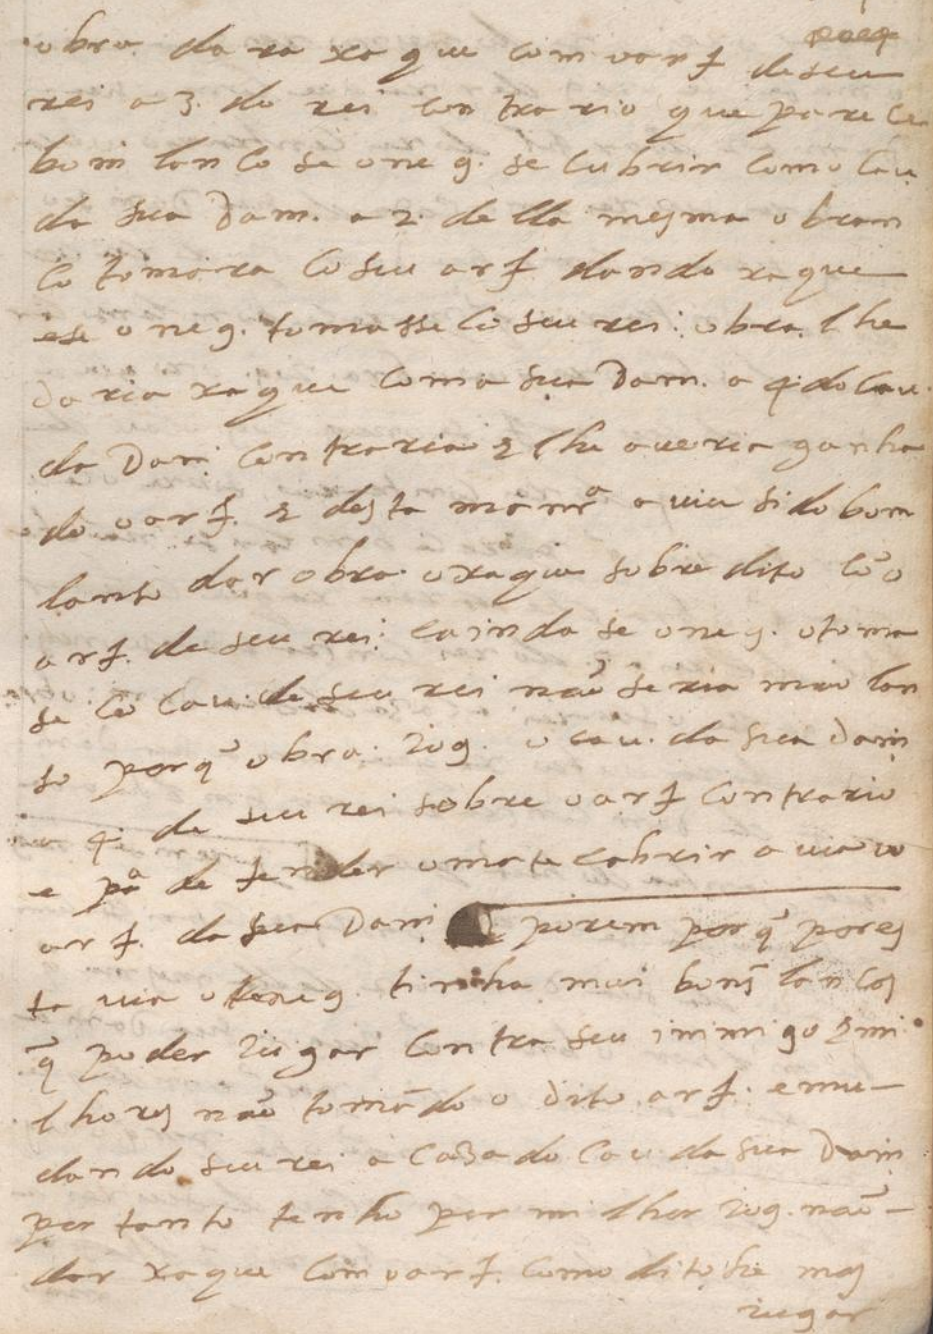 obra. dara xaque com o arf. de seu
rei a 3. do rei contrario que pareceu
bom lanco se o neg. se cubrir como Cau.
da sua Dam. a 2. della mesma o bran
co tomara co seu arf. dando xaque
e se o neg. tomasse co seu rei: obra. lhe
daria xaque com a sua Dam. a 4. do Cau.
da Dam. contraria & lhe aueria ganha
do o arf. & desta manrª auia sido bom
lanso dar obra. o xaque sobre dito cõ o
arf. de seu rei: e ainda se o neg. o toma
se cõ Cau. de seu rei não seria mao lan
so porq̃ obra. iog. o cau. da sua Dam.
a 4. de seu rei sobre o arf. contrario
e pª defender o mate e abrir a uia ao
arf. da sua Dam. porem porq̃ por es
ta uia o neg. tinha mui bons lancos
q̃ poder iugar contra seu inimigo & mi
lhores não tomãdo o dito arf. e mu-
dando seu rei a caza do Cau. da sua Dam.
por tanto tenho por milhor iog. não-
dar xaque com o arf. como dito he mas
iugar